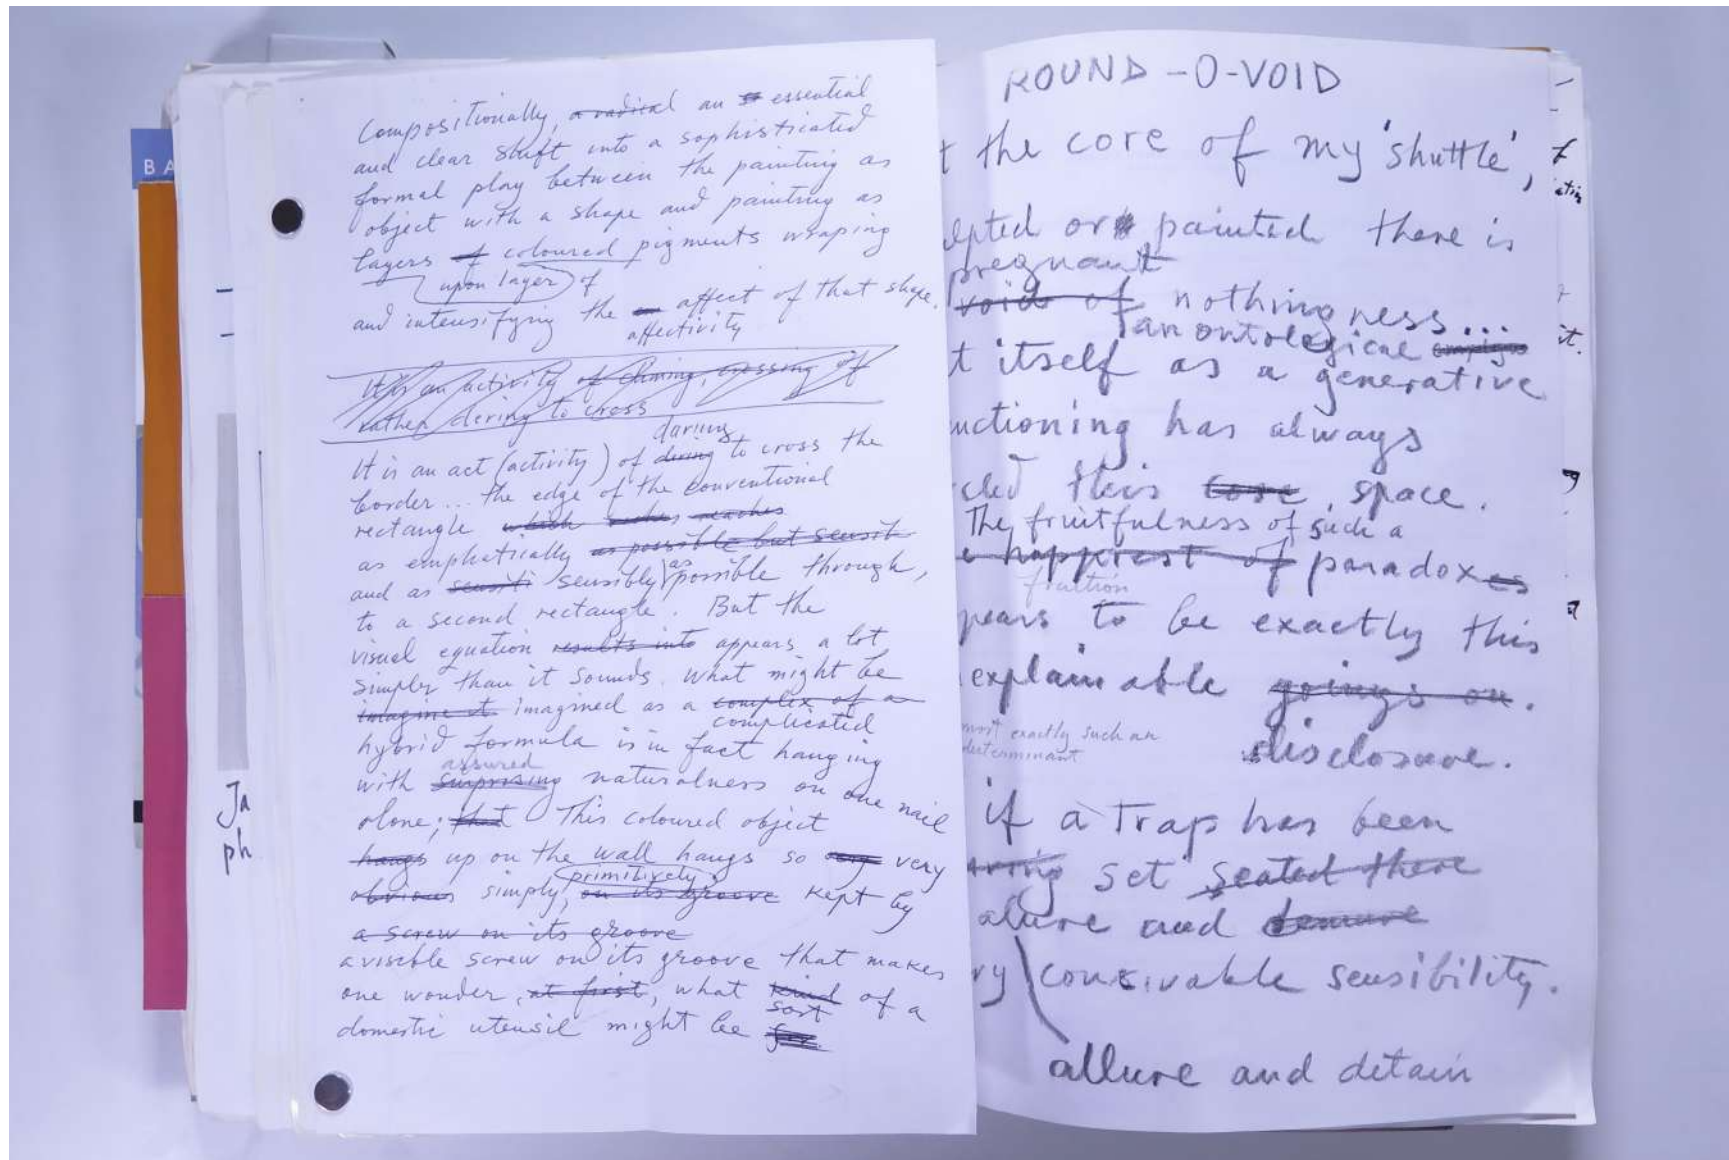 Compositionally, a radical an essential
and clear shift into a sophisticated
formal play between the painting as
object with a shape and painting as
layers of coloured pigments wraping
upon layer of
and intensifying the affect of that shape.
affectivity
It is an activity of diming, crossing of
rather dering to cross
daring
It is an act (activity) of dering to cross the
border... the edge of the conventional
rectangle which reaches
as emphatically as possible but sensib
and as sensibly as possible through,
to a second rectangle. But the
visual equation results into appears a lot
simpler than it sounds. What might be
imagine it imagined as a complex of a
complicated
hybrid formula is in fact hanging
assured
with surprising naturalness on one nail
alone; that This coloured object
hangs up on the wall hangs so very very
primitively
obvious simply, on its groove kept by
a screw on its groove
a visible screw on its groove that makes
one wonder, at first, what kind of a
sort
domestic utensil might be for.
BA
Ja
ph
ROUND-O-VOID
t the core of my 'shuttle',
lpted or painted there is
pregnant
void of nothingness...
an ontological
t itself as a generative
nctioning has always
cled this core space.
The fruitfulness of such a
e happiest of paradoxes
fruition
pears to be exactly this
explainable goings on.
most exactly such an
determinant
disclosure.
if a Trap has been
set seated there
alure and demure
ry concivable sensibility.
allure and detain
it.